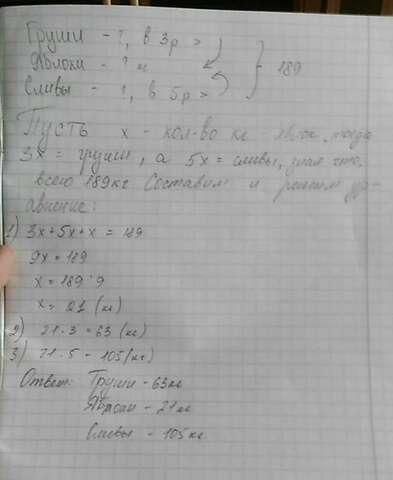 Груши - ?, в 3р >
Яблоки - ? м } 189
Сливы - ?, в 5р >
Пусть х - кол-во кг яблок, тогда
3х = груши, а 5х = сливы, зная что,
всего 189кг Составим и решим ур-
авнение:
1) 3х+5х+х = 189
9х = 189
х = 189 : 9
х = 21 (кг)
2) 21 · 3 = 63 (кг)
3) 21 · 5 = 105 (кг)
Ответ: Груши - 63кг
Яблоки - 21кг
Сливы - 105кг